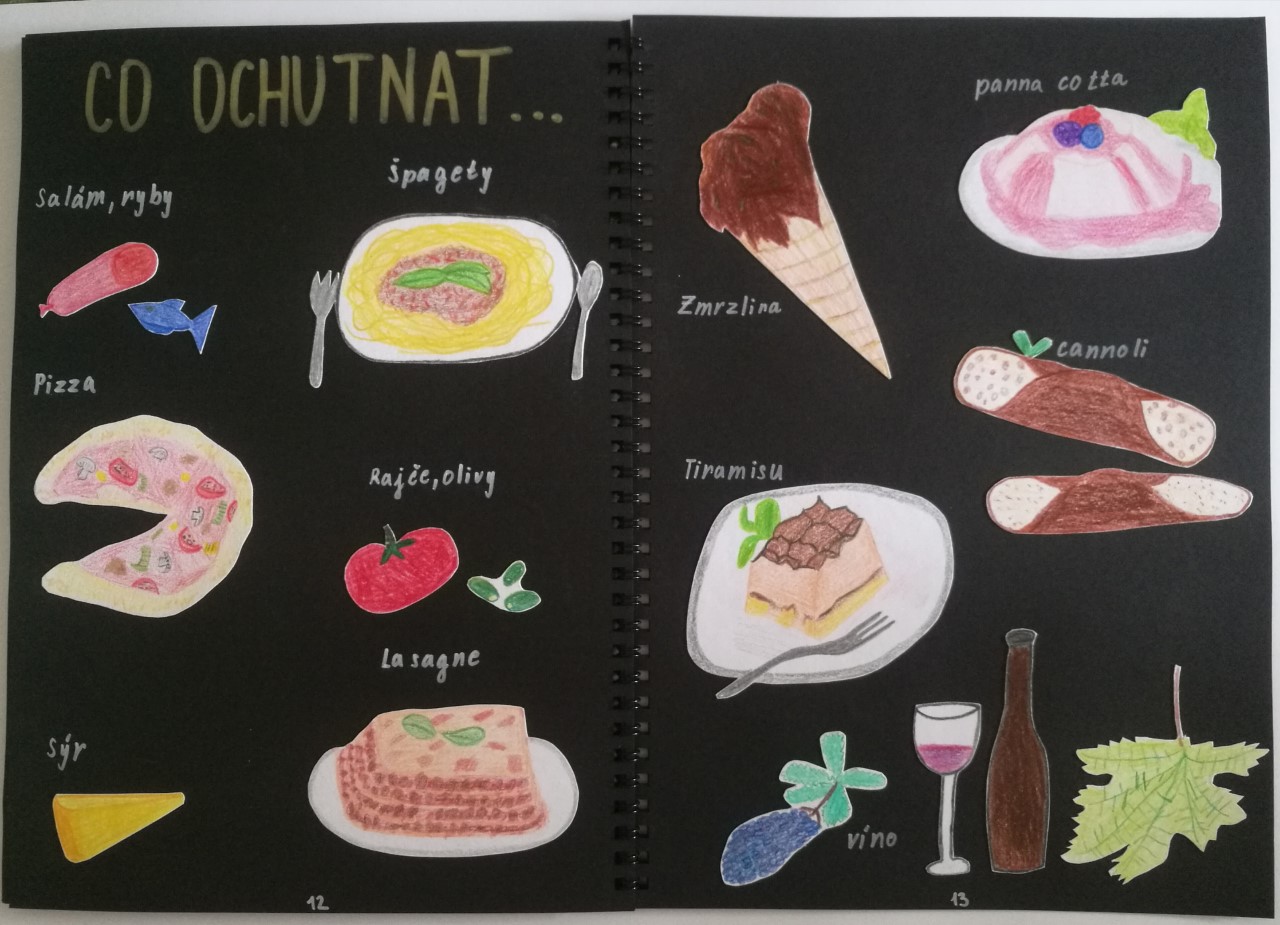 CO OCHUTNAT...
Salám, ryby
špagety
Pizza
Rajče, olivy
Lasagne
Sýr
12
panna cotta
Zmrzlina
cannoli
Tiramisu
víno
13